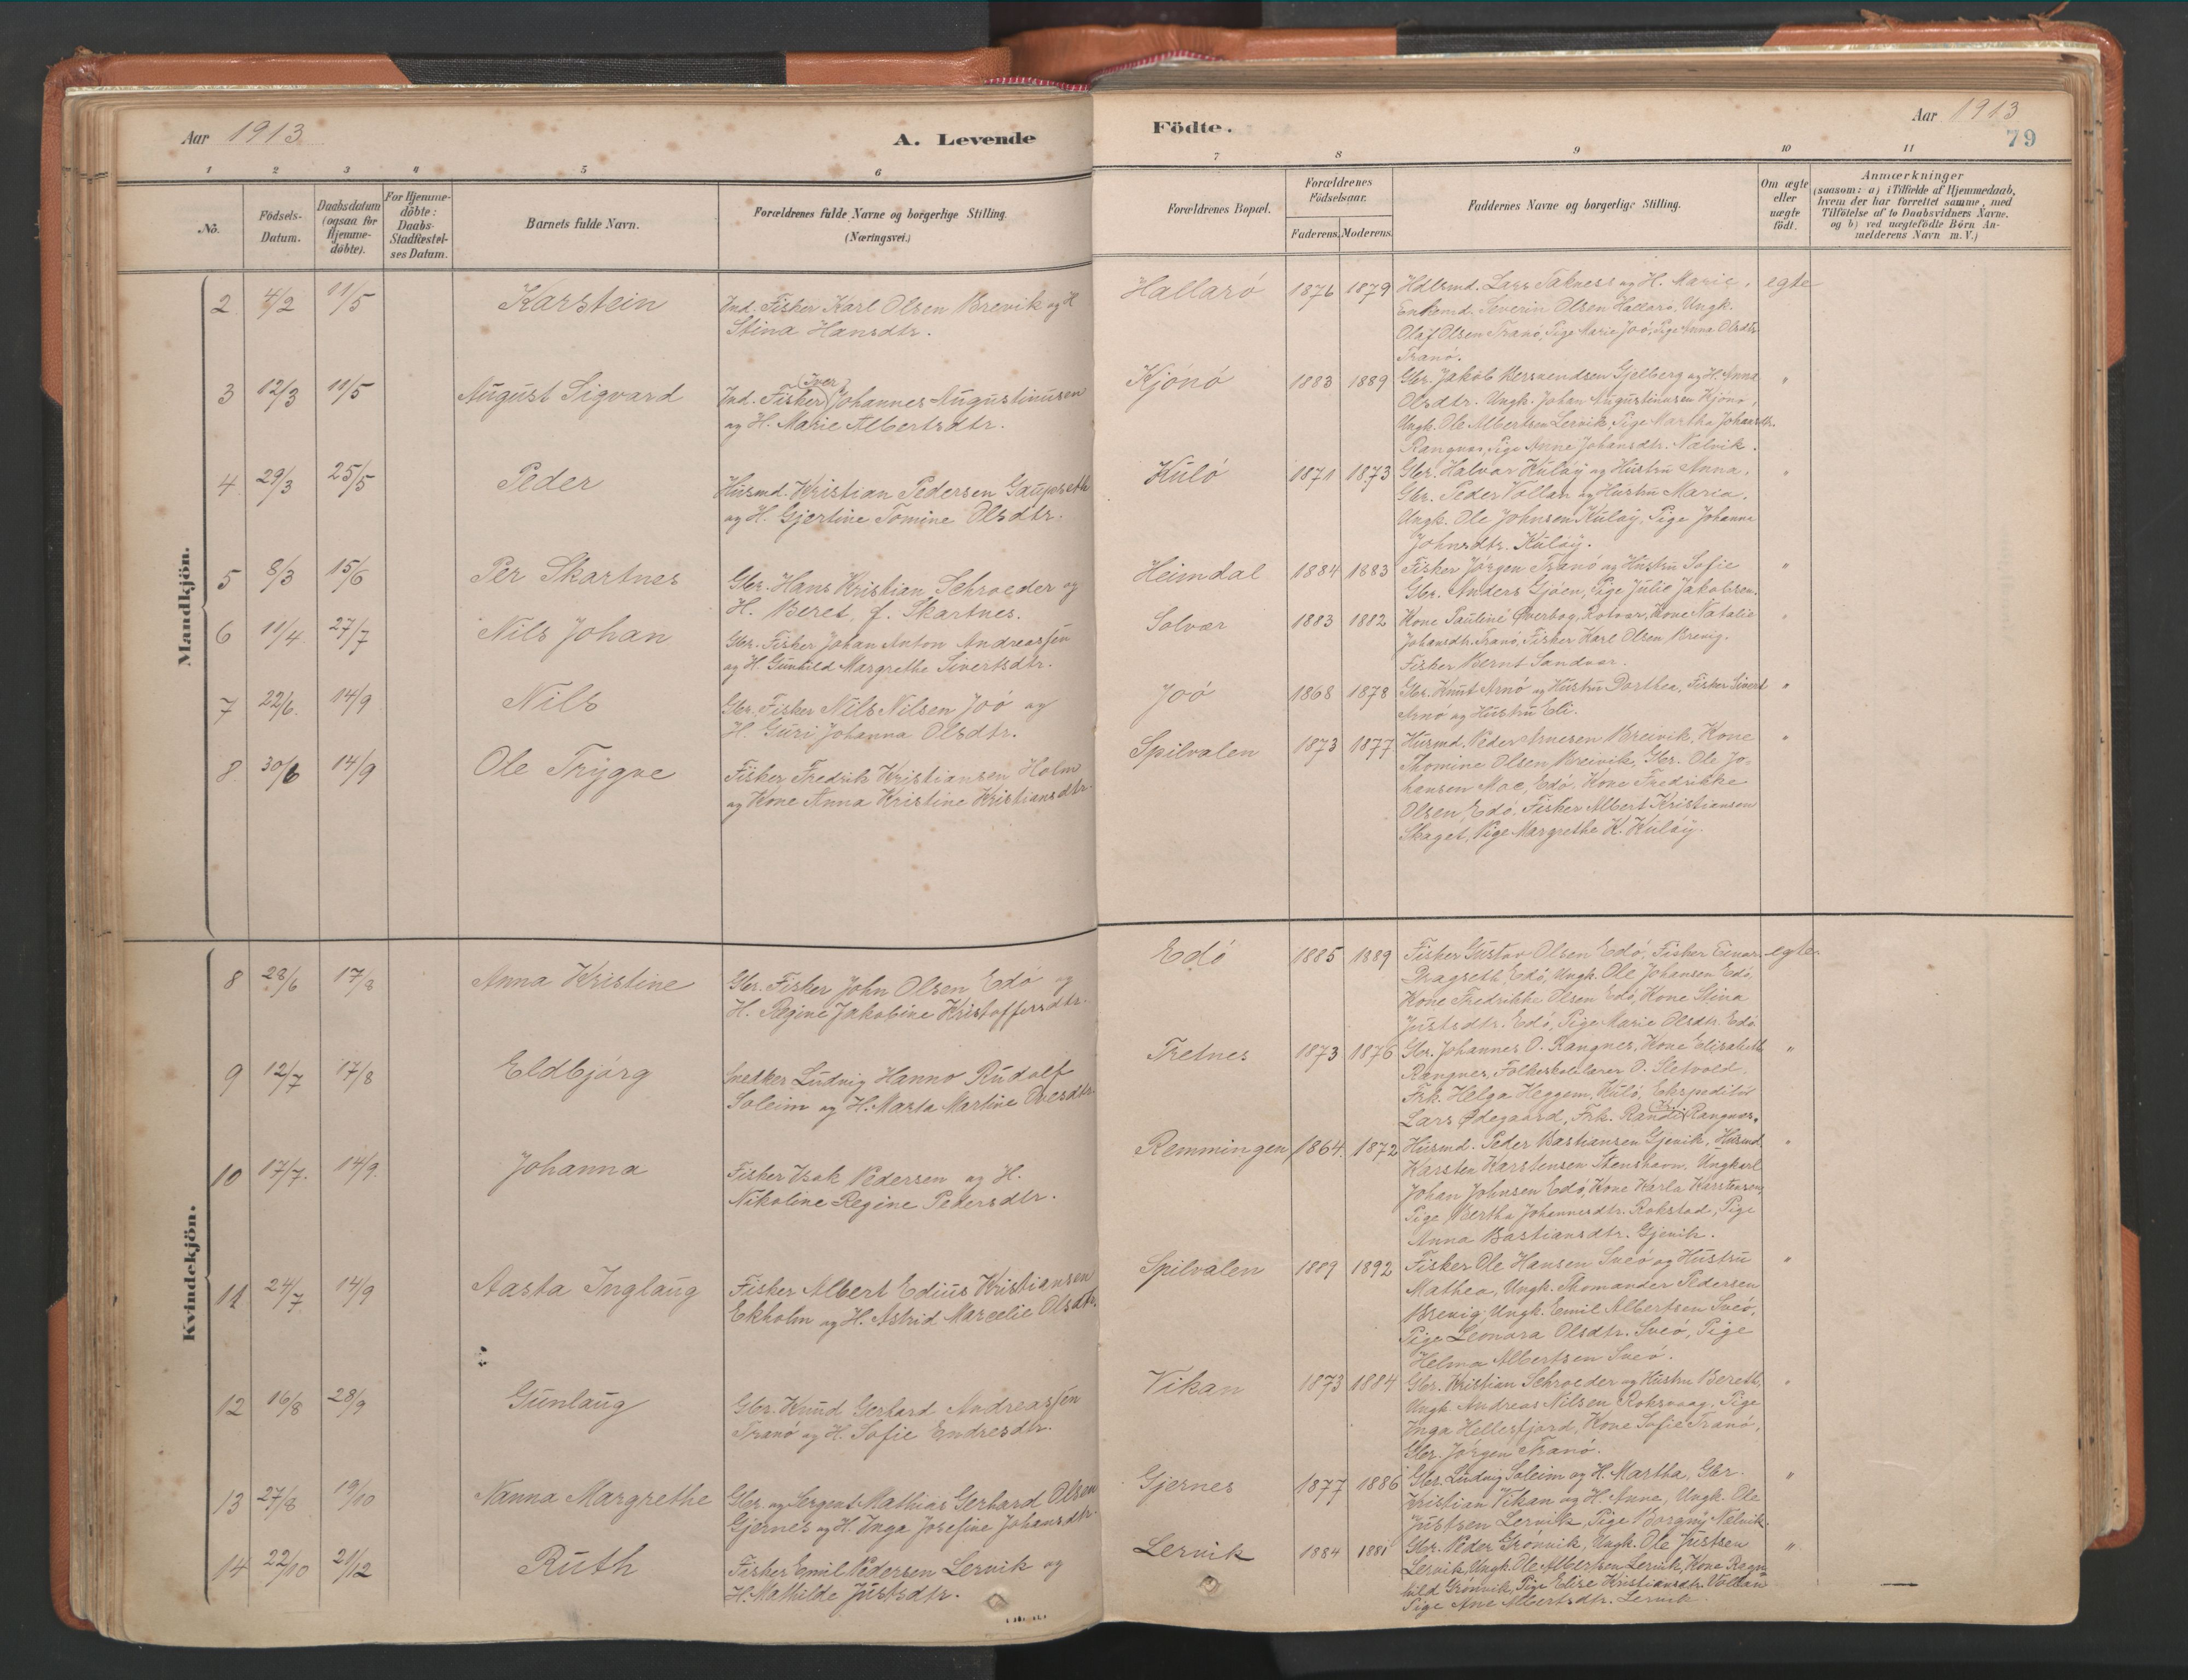 Aar 1913.
A. Levende
Födte.
Aar 1913
79
1 2 3 4 5 6 7 8 9 10 11
No.
Födsels-
Datum.
Daabsdatum
(ogsaa for
Hjemme-
döbte).
For Hjemme-
döbte:
Daabs-
Stadfæstel-
ses Datum.
Barnets fulde Navn.
Forældrenes fulde Navne og borgerlige Stilling.
(Næringsvei.)
Forældrenes Bopæl.
Forældrenes
Födselsaar.
Faderens. Moderens.
Faddernes Navne og borgerlige Stilling.
Om ægte
eller
uægte
födt.
Anmærkninger
(saasom: a) i Tilfælde af Hjemmedaab,
hvem der har forrettet samme, med
Tilföielse af to Daabsvidners Navne.
og b) ved uægtefödte Börn An-
melderens Navn m. V.)
Mandkjön.
2 4/2 11/5 Karstein
Ind. Fisker Karl Olsen Brevik og H
Stina Hansdtr.
Hallarö 1876 1879
Hdlsmd. Lars Taknes og H. Marie,
Enkemd. Severin Olsen Hallarö, Ungk.
Olaf Olsen Tranö, Pige Marie Joö, Pige Anna Olsdtr.
Tranö.
egte
3 12/3 11/5 August Sigvard
Iver
Ind. Fisker Johannes Augustinusen
og H. Marie Albertsdtr.
Kjönö 1883 1889
Gbr. Jakob Gjelberg og H. Anna
Olsdtr. Ungk. Johan Augustinusen Kjönö,
Ungk. Ole Albertsen Lervik, Pige Martha Johansdtr.
Rangnes, Pige Anne Johansdtr. Nælvik.
"
4 29/3 25/5 Peder
Husmd. Kristian Pedersen Gaupseth
og H. Gjertine Tomine Olsdtr.
Kulö 1871 1873
Gbr. Halvar Kulöy og Hustru Anna,
Gbr. Peder Vollan og Hustru Maria.
Ungk. Ole Johnsen Kulöy, Pige Johanne
Johnsdtr. Kulöy.
"
5 8/3 15/6 Per Skartnes
Gbr. Hans Kristian Schroeder og
H. Beret, f. Skartnes.
Heimdal 1884 1883
Fisker Jörgen Tranö og Hustru Sofie
Gbr. Anders Gjöen, Pige Julie Jakobsen.
"
6 11/4. 27/7 Nils Johan
Gbr. Fisker Johan Anton Andreassen
og H. Gunhild Margrethe Sivertsdtr.
Solvær 1883 1882
Kone Pauline Øverbog, Rotvær, Kone Natalie
Johansdtr. Tranö, Fisker Karl Olsen Brevig.
Fisker Bernt Sandvær.
"
7 22/6. 14/9 Nils
Gbr. Fisker Nils Nilsen Joö og
H. Guri Johanna Olsdtr.
Joö 1868 1878
Gbr. Knut Arnö og Hustru Dorthea, Fisker Sivert
Arnö og Hustru Eli.
"
8. 30/6 14/9 Ole Trygve
Fisker Fredrik Kristiansen Holm
og Kone Anna Kristine Kristiansdtr.
Spilvalen 1873 1877
Husmd. Peder Arnesen Breivik, Kone
Thomine Olsen Breivik, Gbr. Ole Jo-
hansen Moe, Edö, Kone Fredrikke
Olsen, Edö, Fisker Albert Kristiansen
Skaget, Pige Margrethe K. Kulöy.
"
Kvindekjön.
8 28/6 17/8 Anna Kristine
Gbr. Fisker John Olsen Edö og
H. Regine Jakobine Kristoffersdtr.
Edö 1885 1889
Fisker Gustav Olsen Edö, Fisker Einar
Dragseth, Edö, Ungk. Ole Johansen Edö
Kone Fredrikke Olsen Edö, Kone Stina
Justsdtr. Edö, Pige Marie Olsdtr. Edö
egte.
9 12/7 17/8 Eldbjörg
Snedker Ludvig Hanno Rudolf
Soleim og H. Marta Martine Olesdtr.
Tretnes 1873 1876
Gbr. Johannes O. Rangnes, Kone Elisabeth
Rangnes, Folkeskolelærer O. Sletvold.
Frk. Helga Heggem, Kulö, Ekspeditör
Lars Ødegaard, Frk. Randi Rangnes.
"
10 17/7. 14/9. Johanna
Fisker Isak Pedersen og H.
Nikoline Regine Petersdtr.
Remmingen 1864. 1872
Husmd. Peder Bastiansen Gjevik, Husmd.
Karsten Karstensen Stenshavn, Ungkarl
Johan Johnsen Edö, Kone Karla Karstensen,
Pige Bertha Johannesdtr. Rokstad, Pige
Anna Bastiansdtr. Gjevik.
"
11 24/7 14/9 Aasta Inglaug
Fisker Albert Edius Kristiansen
Ekholm og H. Astrid Marcelie Olsdtr.
Spilvalen 1889 1892
Fisker Ole Hansen Sveö og Hustru
Mathea, Ungk. Thomander Pedersen
Brevig, Ungk. Emil Albertsen Sveö,
Pige Leonora Olsdtr. Sveö, Pige
Helma Albertsen Sveö.
"
12 16/8 28/9 Gunlaug
Gbr. Knud Gerhard Andreassen
Tranö og H. Sofie Endresdtr.
Vikan 1873 1884
Gbr. Kristian Schroeder og Hustru Berett,
Ungk. Andreas Nilsen Roksvaag, Pige
Inga Hellesfjord, Kone Sofie Tranö,
Gbr. Jörgen Tranö.
"
13 27/8 19/10 Nanna Margrethe
Gbr. og Sergent Mathias Gerhard Olsen
Gjernes og H. Inga Josefine Johansdtr.
Gjernes 1877 1886
Gbr. Ludvig Soleim og H. Martha, Gbr.
Kristian Vikan og H. Anne, Ungk. Ole
Justsen Lervik, Pige Borgny Nælvik.
"
14 22/10 21/12 Ruth
Fisker Emil Pedersen Lervik og
H. Mathilde Justsdtr.
Lervik 1884 1881
Gbr. Peder Grönvik, Ungk. Ole Justsen
Lervik, Ungk. Ole Albertsen Lervik, Kone Ragn-
hild Grönvik, Pige Elise Kristiansdtr. Vollan
Pige Ane Albertsdtr. Lervik.
"